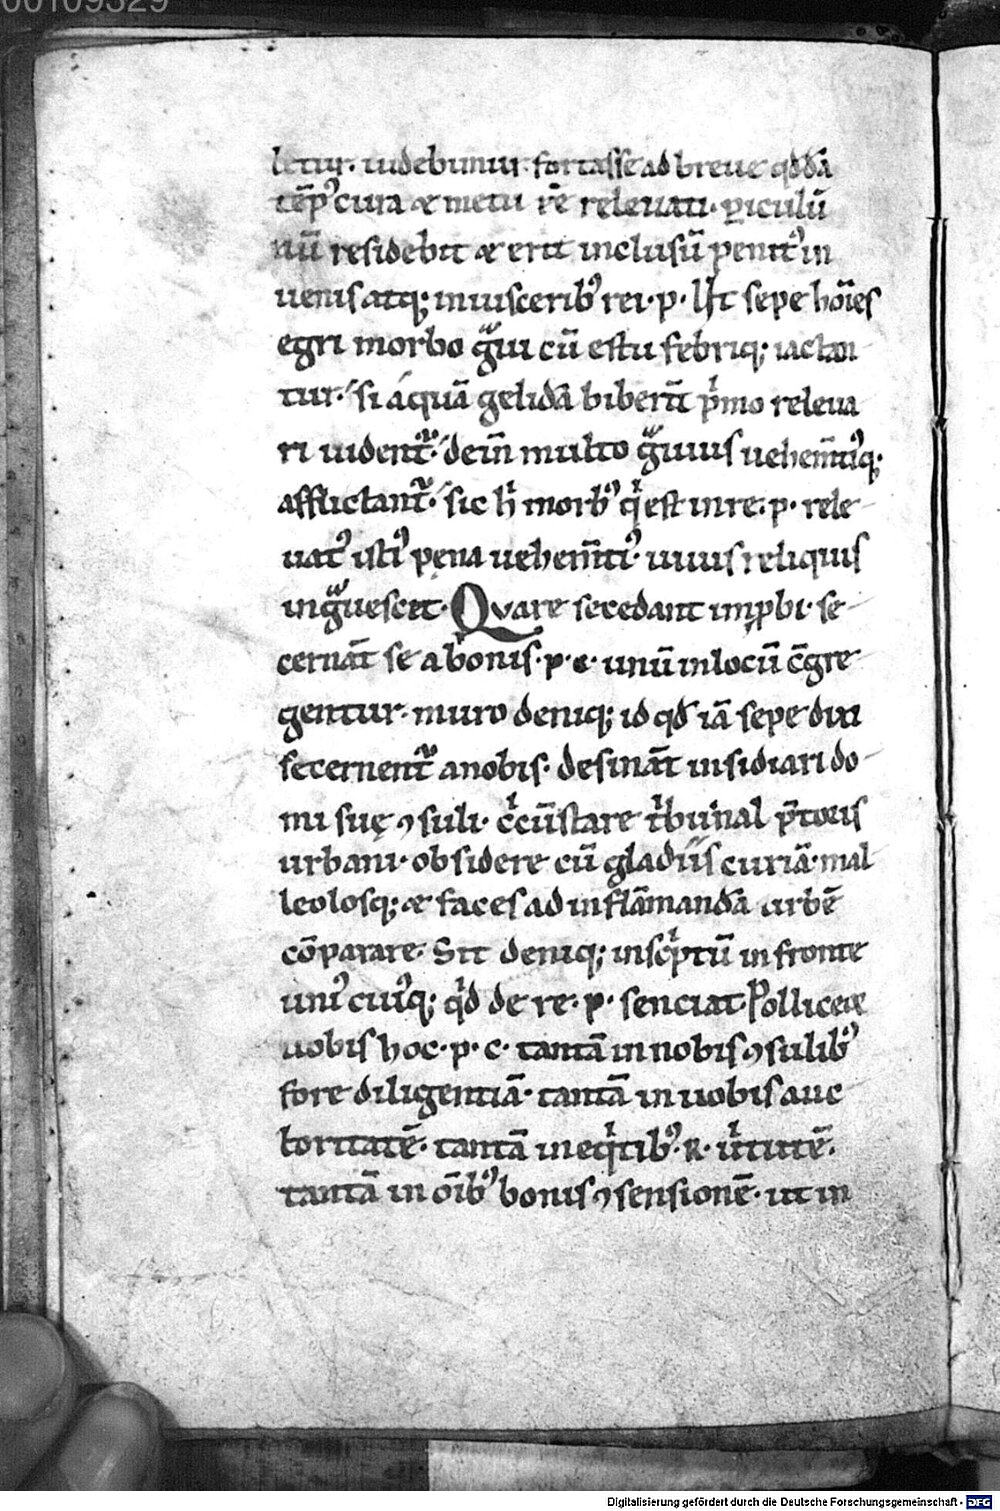 00109329
letur. uidebimur fortasse ad breue qddā
tēp᷒ cura & metu eē releuati. ꝑiculū
aū residebit & erit inclusū penit᷒ in
uenis atq; inuiscerib᷒ rei. p. Ut sepe hōies
egri morbo gͣui cū estu febriq; iactan
tur. si aquā gelidā biberīt pͥmo releua
ri uident᷑. dein̄ multo gͣuius uehem̄tiᷤq;
afflictant᷑. sic hͥ morb᷒ qͥ est in re. p. rele
uat᷒ isti᷒ pena uehem̄ti᷒ uiuis reliquis
ingͣuescet. Quare secedant imꝓbi. se
cernāt se abonis. p. c. unū inlocū cͦ̄gre
gentur. muro deniq; id qd iā sepe dixi
secernent᷑ anobis. desināt insidiari do
mi suę ꝯsuli. cͥcūstare tͥbunal p̄toris
urbani. obsidere cū gladiis curiā. mal
leolosq; & faces ad inflāmandā urbē
cōparare. Sit deniq; inscͥptū in fronte
uni᷒ cui᷒q; qͥd de re. p. senciat. Polliceor
uobis hoc. p. c. tantā in nobis ꝯsulib᷒
fore diligentiā. tantā in uobis auc
toritatē. tantā in eqͥtib᷒. R. uͥtutē.
tantā in oīb᷒ bonis ꝯsensionē. ut in
Digitalisierung gefördert durch die Deutsche Forschungsgemeinschaft - DFG